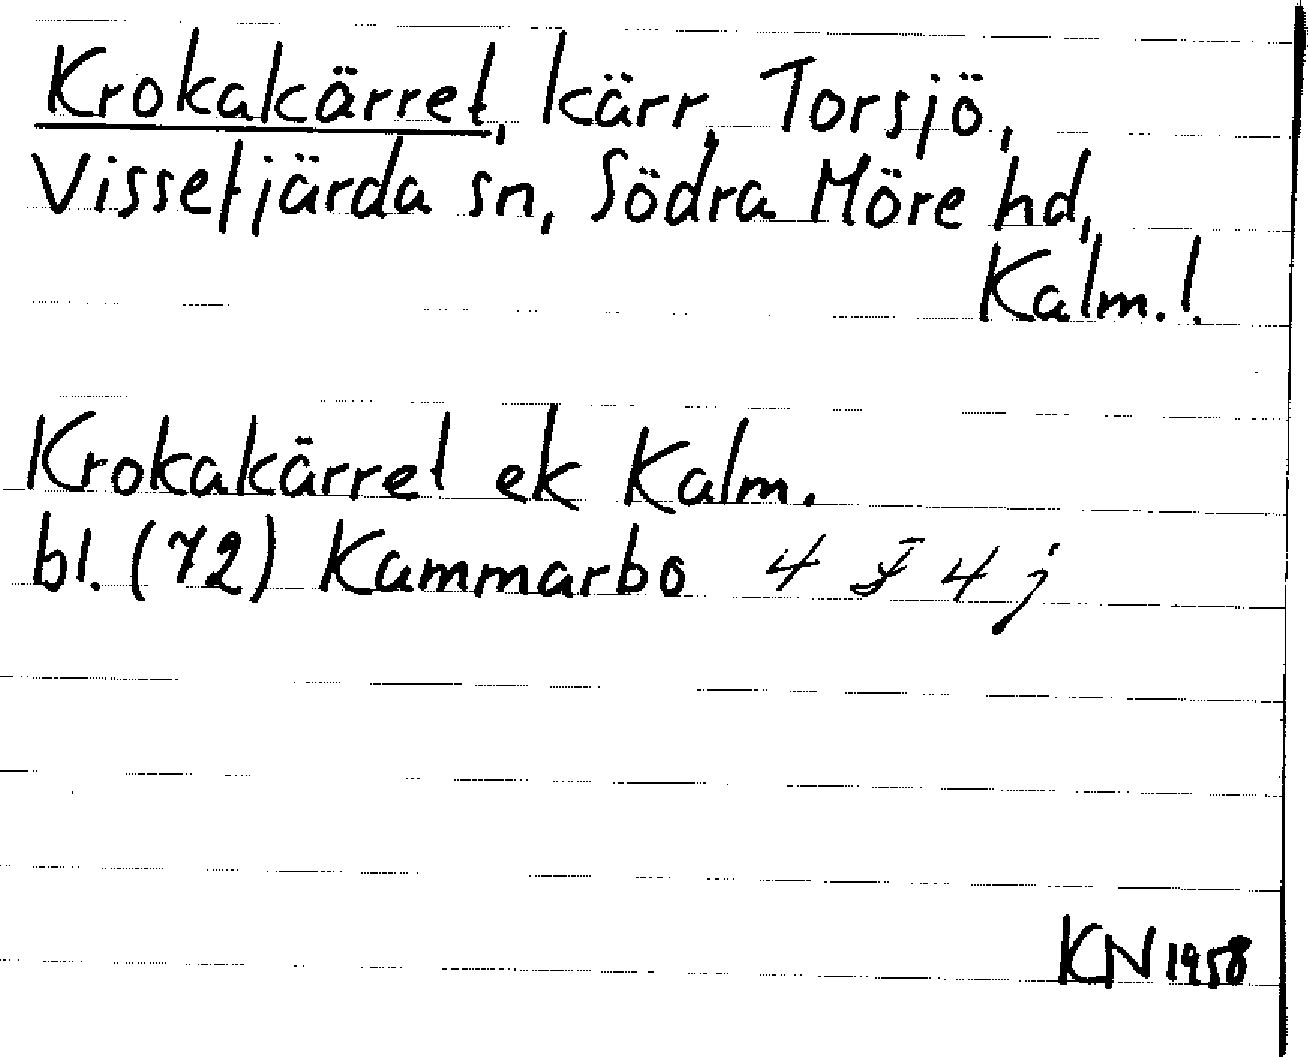 Krokakärret, kärr, Torsjö,
Vissefjärda sn, Södra Möre hd,
Kalm. l.
Krokakärret ek Kalm.
bl. (72) Kammarbo 4 F 4 j
KN 1958